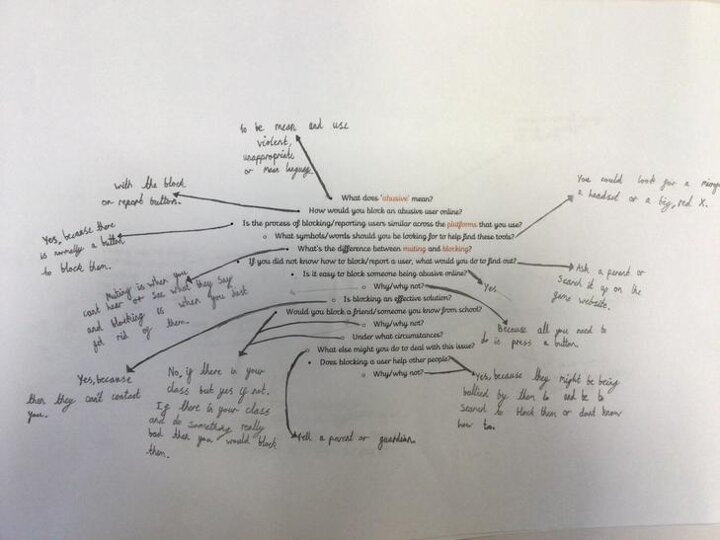 to be mean and use
violent,
unappropriate
or mean language.
with the block
or report button.
You could look for a
a headset or a big, red X.
Yes, because there
is normally a button
to block them.
What does 'abusive' mean?
How would you block an abusive user online?
Is the process of blocking/reporting users similar across the platforms that you use?
What symbols/words should you be looking for to help find these tools?
What's the difference between muting and blocking?
If you did not know how to block/report a user, what would you do to find out?
Is it easy to block someone being abusive online?
Why/why not?
Is blocking an effective solution?
Would you block a friend/someone you know from school?
Why/why not?
Under what circumstances?
What else might you do to deal with this issue?
Does blocking a user help other people?
Why/why not?
Muting is when you
cant hear or see what they say
and blocking is when you just
get rid of them.
Ask a parent or
search it up on the
game website.
Yes.
Because all you need to
do is press a button.
Yes, because
then they can't contact
you.
No, if there in your
class but yes if not.
If there in your class
and do something really
bad then you would block
them.
Tell a parent or guardian.
Yes, because they might be being
bullied by them to and be to
scared to block them or dont know
how to.